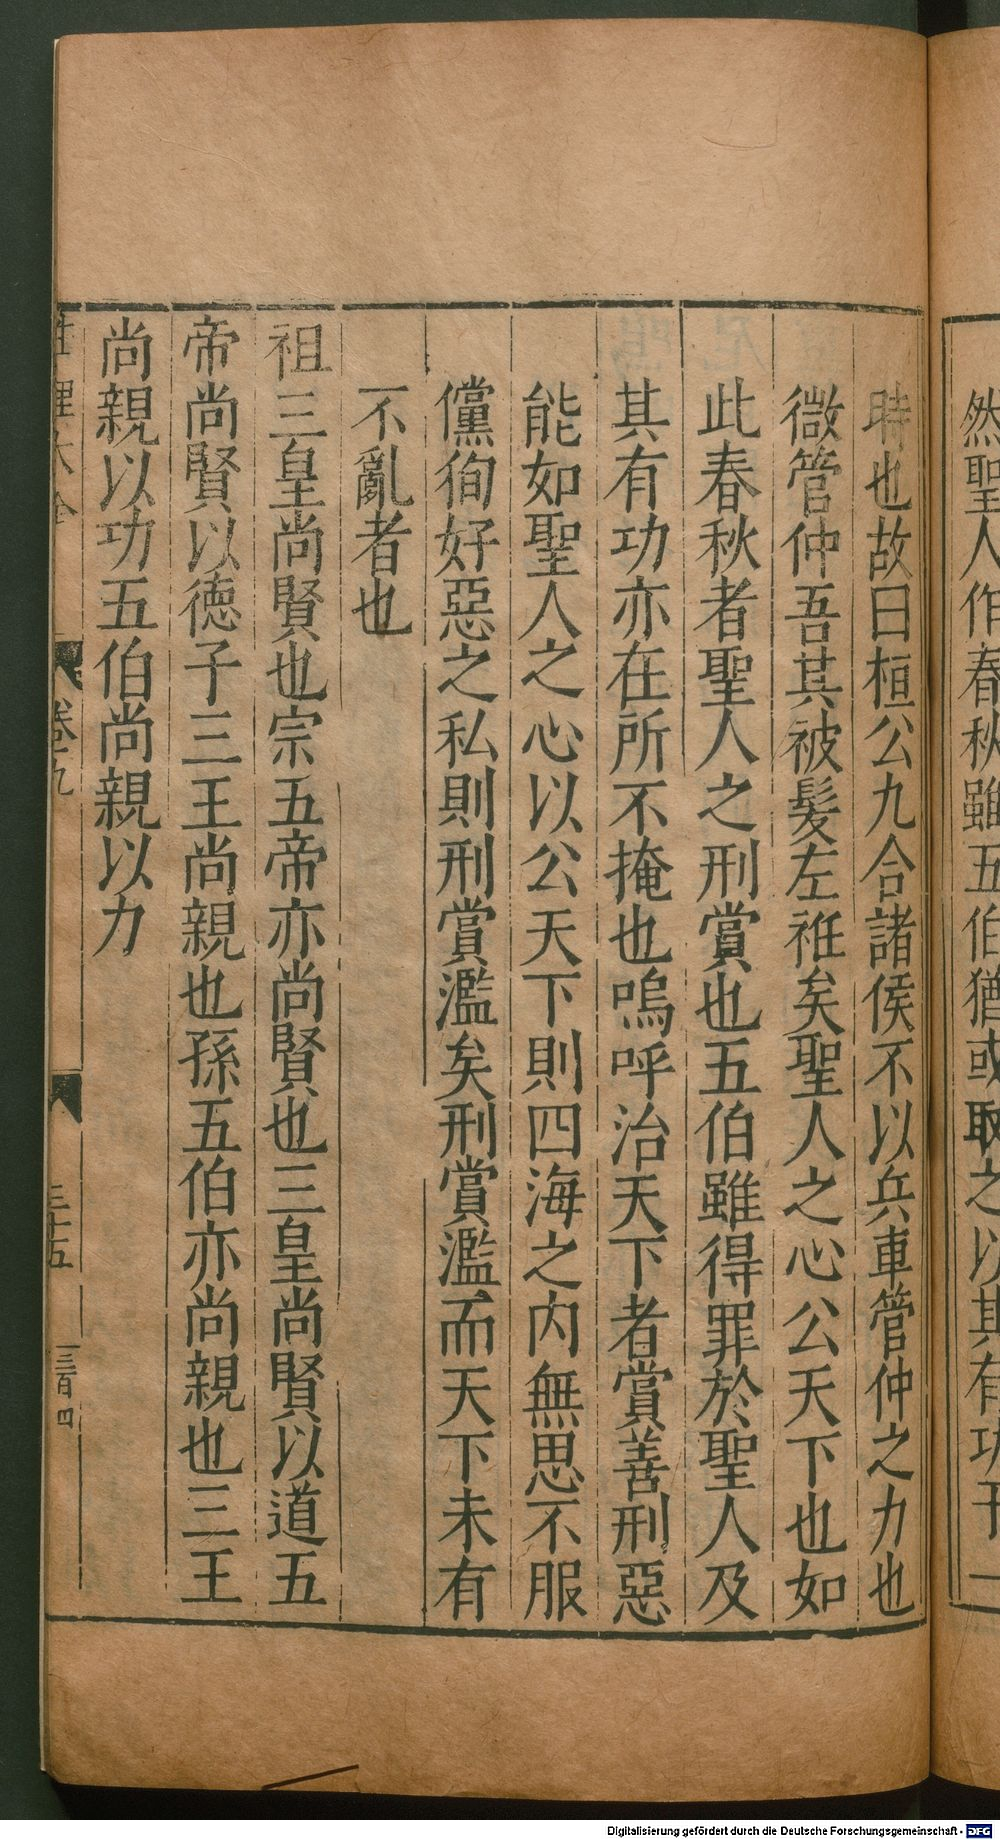 然聖人作春秋雖五伯猶或取之以其有功于一
時也故曰桓公九合諸侯不以兵車管仲之力也
微管仲吾其被髮左袵矣聖人之心公天下也如
此春秋者聖人之刑賞也五伯雖得罪於聖人及
其有功亦在所不掩也嗚呼治天下者賞善刑惡
能如聖人之心以公天下則四海之内無思不服
儻徇好惡之私則刑賞濫矣刑賞濫而天下未有
不亂者也
祖三皇尚賢也宗五帝亦尚賢也三皇尚賢以道五
帝尚賢以德子三王尚親也孫五伯亦尚親也三王
尚親以功五伯尚親以力
性理大全 卷九 三十五 三百四
Digitalisierung gefördert durch die Deutsche Forschungsgemeinschaft - DFG